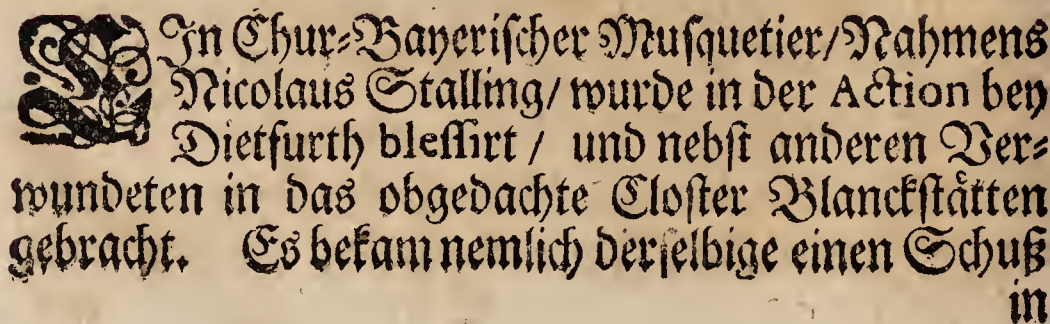 EIn Chur-Bayerischer Musquetier/Nahmens
Nicolaus Stalling/ wurde in der Action bey
Dietfurth blessirt / und nebst anderen Ver-
wundeten in das obgedachte Closter Blanckstätten
gebracht. Es bekam nemlich derselbige einen Schuß
in